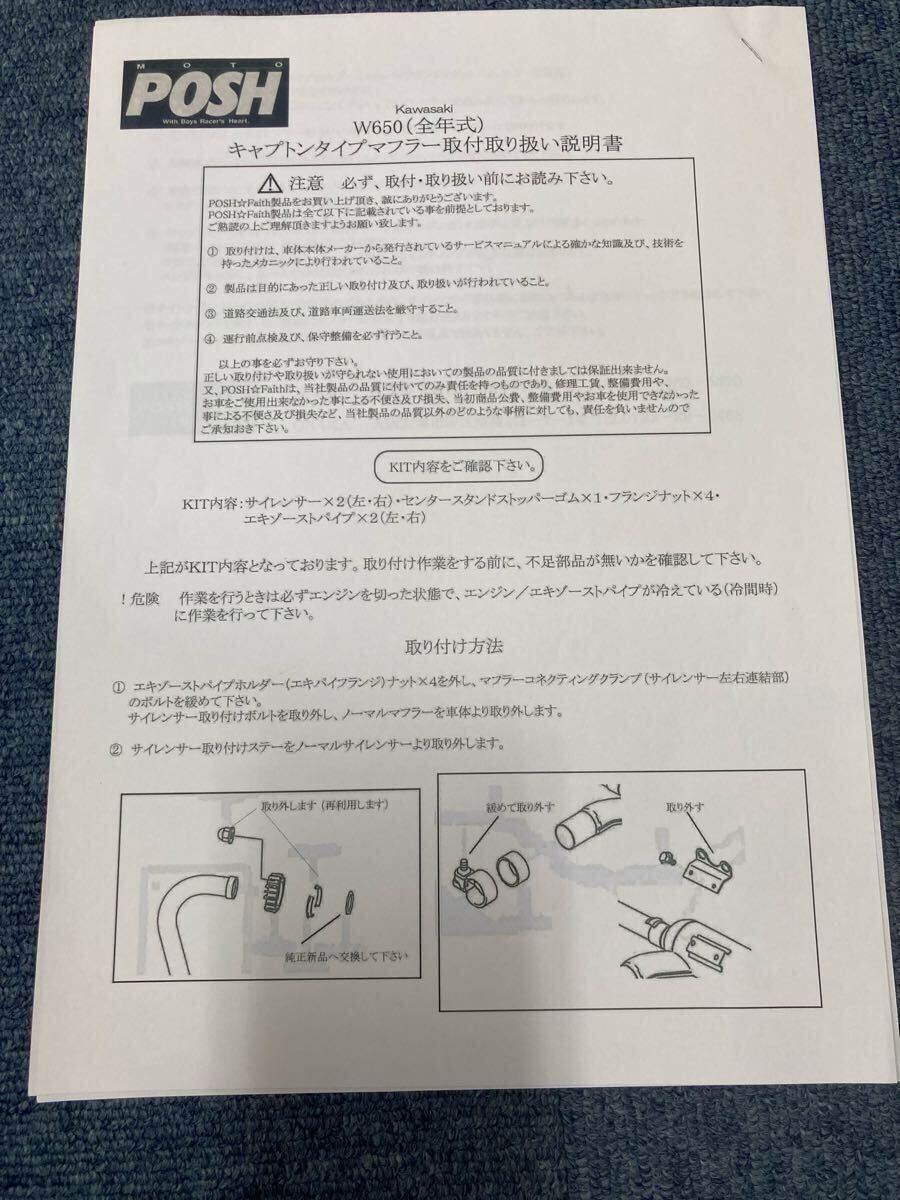 MOTO
POSH
With Boys Racer's Heart.
Kawasaki
W650(全年式)
キャプトンタイプマフラー取付取り扱い説明書
注意 必ず、取付・取り扱い前にお読み下さい。
POSH☆Faith製品をお買い上げ頂き、誠にありがとうございます。
POSH☆Faith製品は全て以下に記載されている事を前提としております。
ご熟読の上ご理解頂きますようお願い致します。
① 取り付けは、車体本体メーカーから発行されているサービスマニュアルによる確かな知識及び、技術を
持ったメカニックにより行われていること。
② 製品は目的にあった正しい取り付け及び、取り扱いが行われていること。
③ 道路交通法及び、道路車両運送法を厳守すること。
④ 運行前点検及び、保守整備を必ず行うこと。
以上の事を必ずお守り下さい。
正しい取り付けや取り扱いが守られない使用においての製品の品質に付きましては保証出来ません。
又、POSH☆Faithは、当社製品の品質に付いてのみ責任を持つものであり、修理工賃、整備費用や、
お車をご使用出来なかった事による不便さ及び損失、当初商品公費、整備費用やお車を使用できなかった
事による不便さ及び損失など、当社製品の品質以外のどのような事柄に対しても、責任を負いませんので
ご承知おき下さい。
KIT内容をご確認下さい。
KIT内容:サイレンサー×2(左・右)・センタースタンドストッパーゴム×1・フランジナット×4・
エキゾーストパイプ×2(左・右)
上記がKIT内容となっております。取り付け作業をする前に、不足部品が無いかを確認して下さい。
!危険 作業を行うときは必ずエンジンを切った状態で、エンジン/エキゾーストパイプが冷えている(冷間時)
に作業を行って下さい。
取り付け方法
① エキゾーストパイプホルダー(エキパイフランジ)ナット×4を外し、マフラーコネクティングクランプ(サイレンサー左右連結部)
のボルトを緩めて下さい。
サイレンサー取り付けボルトを取り外し、ノーマルマフラーを車体より取り外します。
② サイレンサー取り付けステーをノーマルサイレンサーより取り外します。
取り外します(再利用します)
純正新品へ交換して下さい
緩めて取り外す
取り外す